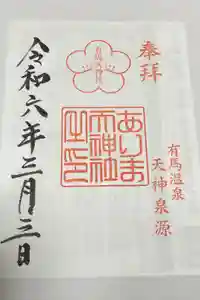 奉拝
有馬温泉
天神泉源
ありま
天神社
之印
令和六年三月三日